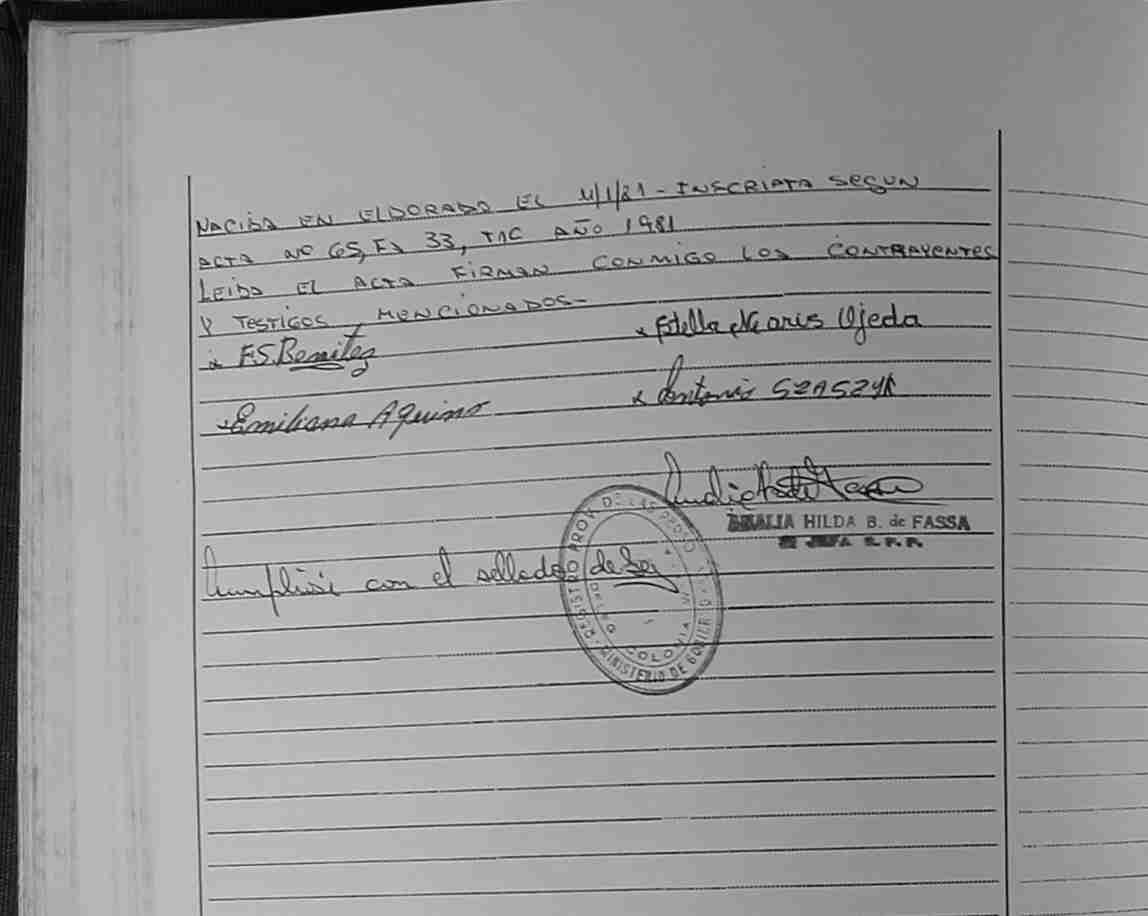 NACIDA EN ELDORADO EL 4/1/81 - INSCRIPTA SEGUN
ACTA Nº 65, Fº 33, T1C AÑO 1981
LEIDA EL ACTA FIRMAN CONMIGO LOS CONTRAYENTES
Y TESTIGOS MENCIONADOS-
x F.S. Benitez
x Estella Maris Ojeda
x Emiliana Aquino
x Antonio SZASZYK
HILDA B. de FASSA
JEFA
con el sellado de Ley
REGISTRO PROV. DE LAS PERSONAS
MINISTERIO DE GOBIERNO
COLONIA